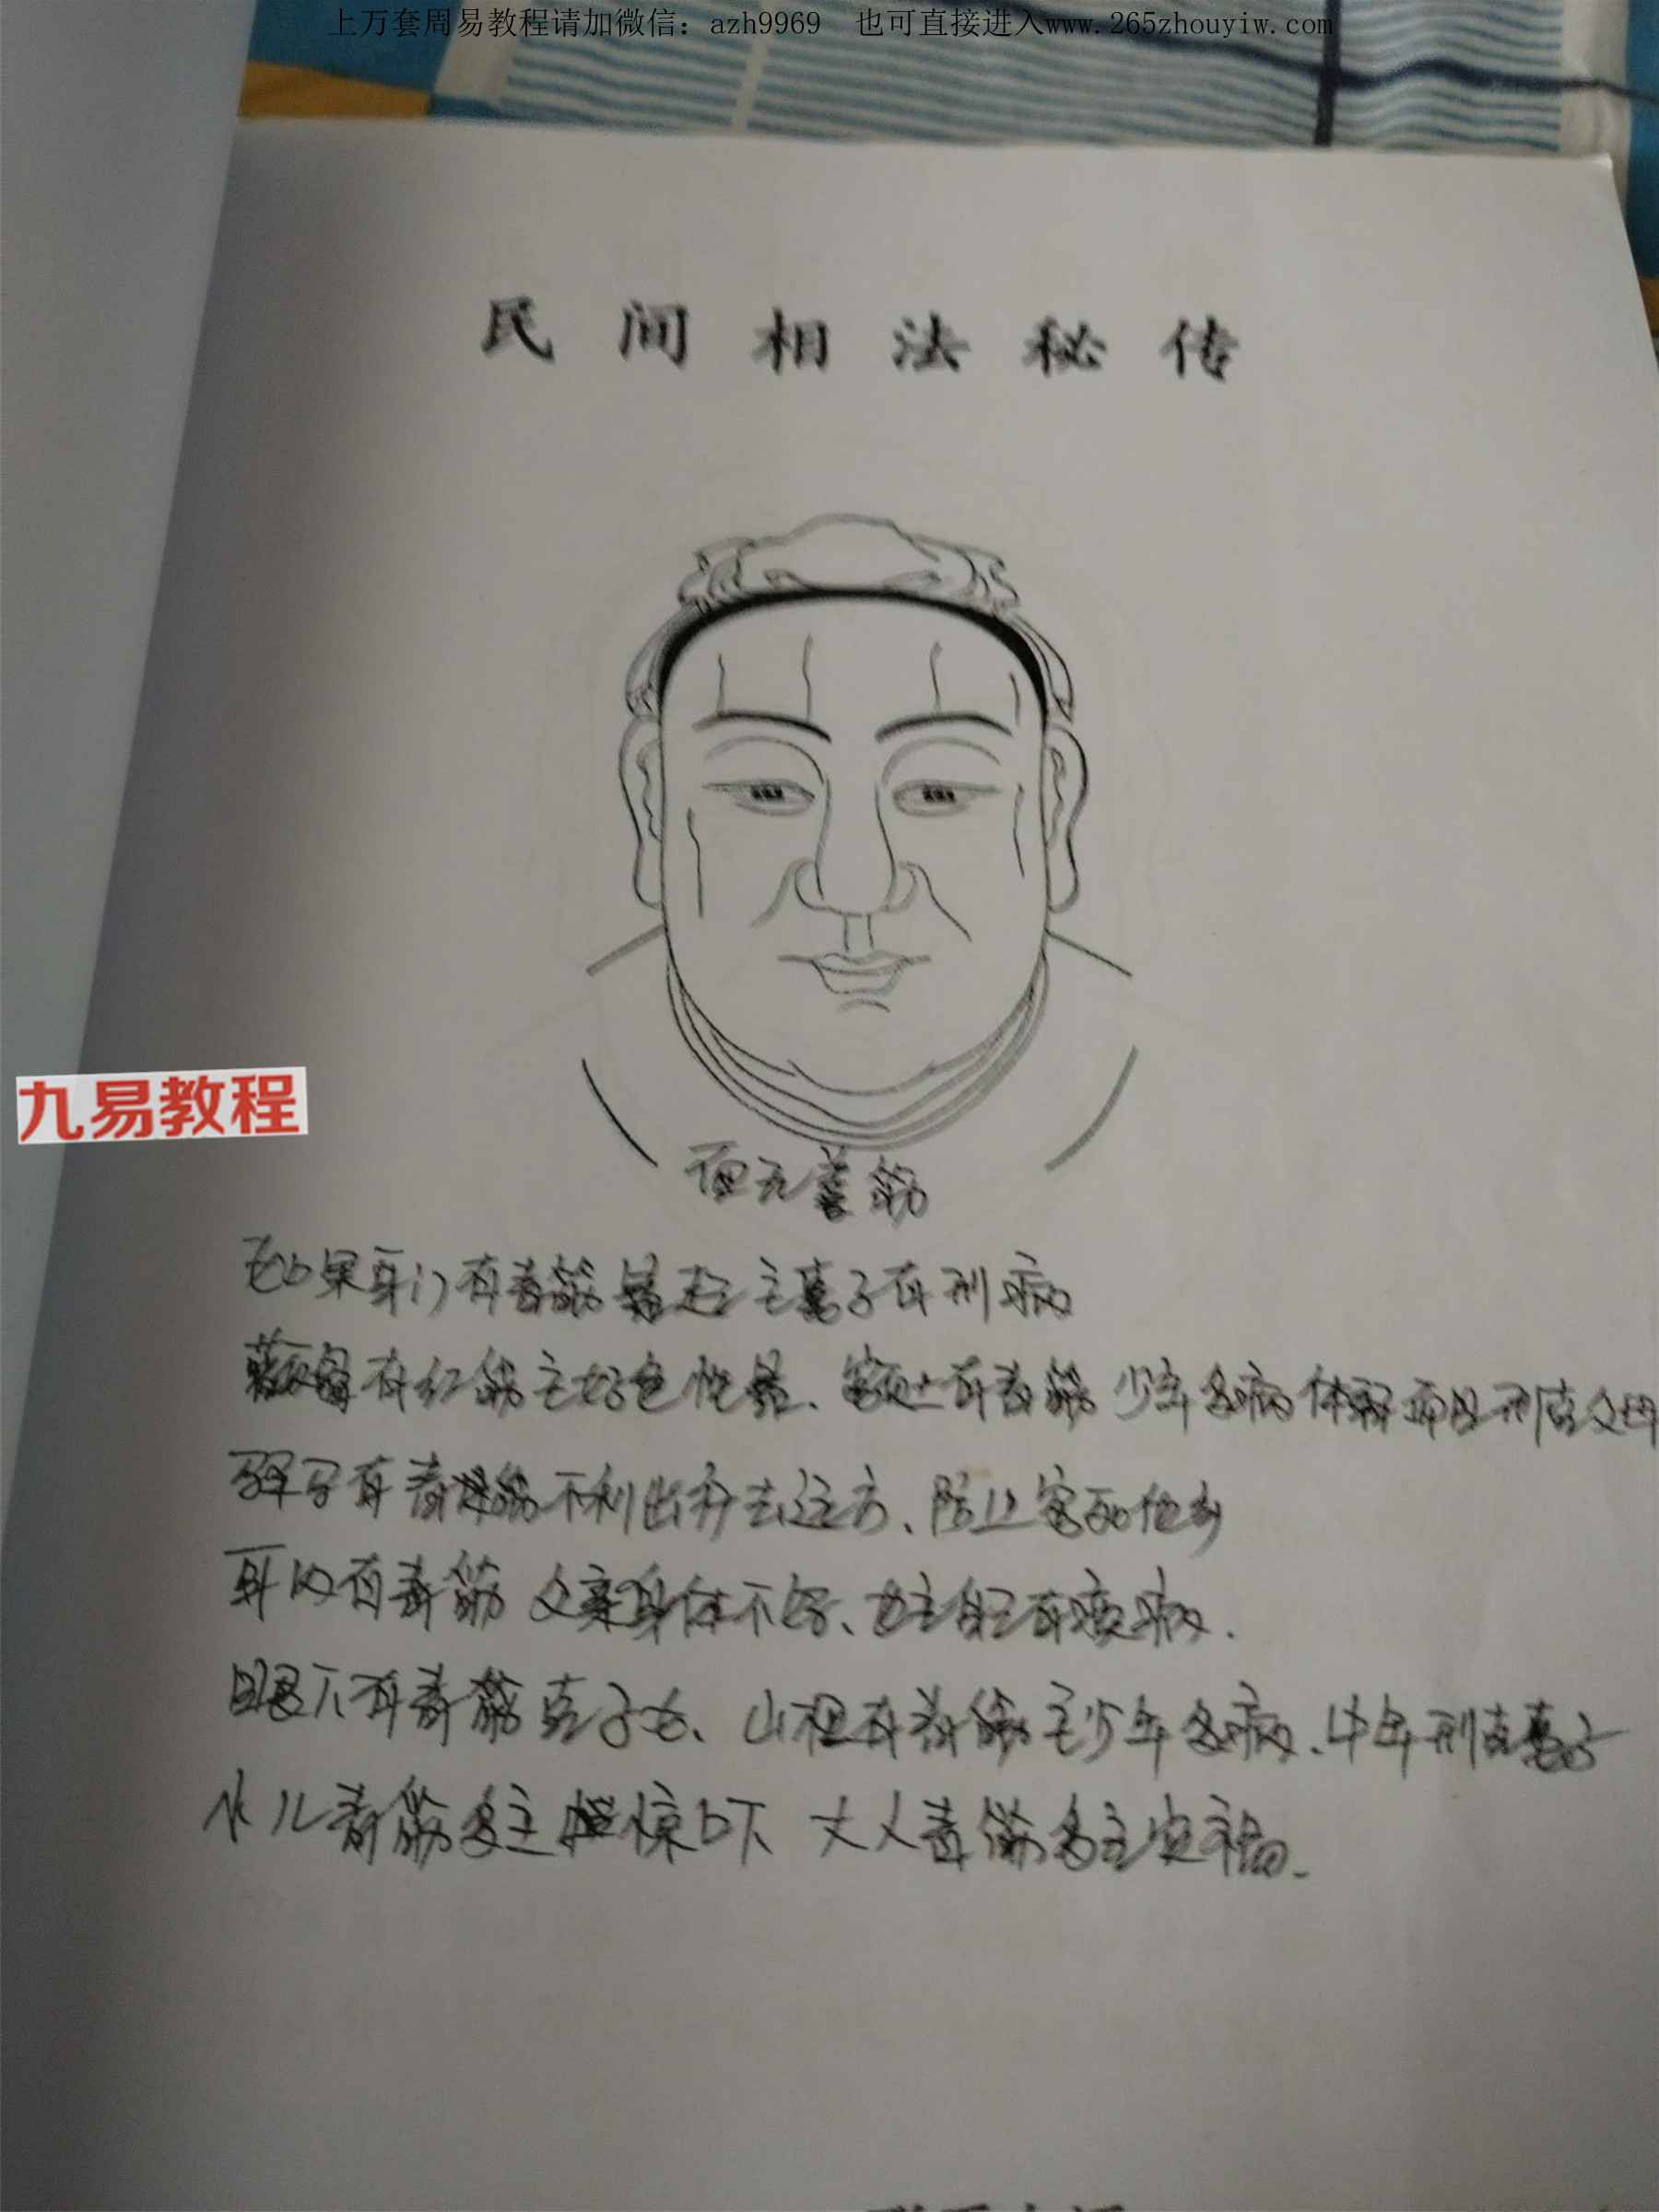 上万套周易教程请加微信：azh9969 也可直接进入www.265zhouyiw.com
民间相法秘传
九易教程
面无善筋
有青筋暴起主妻子有刑病
有红筋主好色性暴、额上有青筋 少年多病体弱而且刑克父母
驿马有青筋不利出外去远方、防止客死他乡
耳内有青筋 父亲身体不好、也主自己有疾病.
眼下有青筋克子女、山根有青筋主少年多病、中年刑克妻子
小儿青筋多主惊吓 大人青筋多主灾祸.